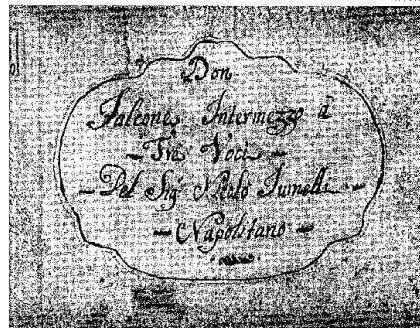 Don
Falcone Intermezzo à
Tre Voci
Del Sig.r Nicolo Jumelli
Napolitano